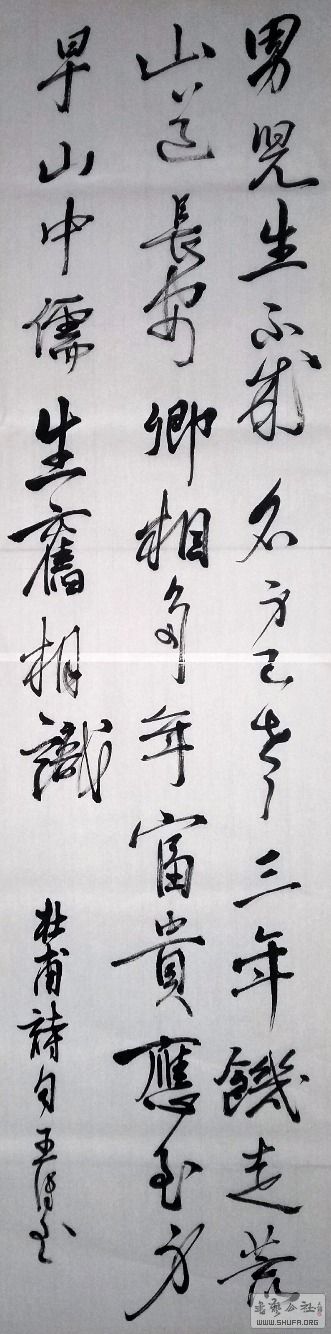 男兒生不成名身已老三年饑走荒
山道長安卿相多少年富貴應致身
早山中儒生舊相識
杜甫詩句王
書藝公社
WWW.SHUFA.ORG